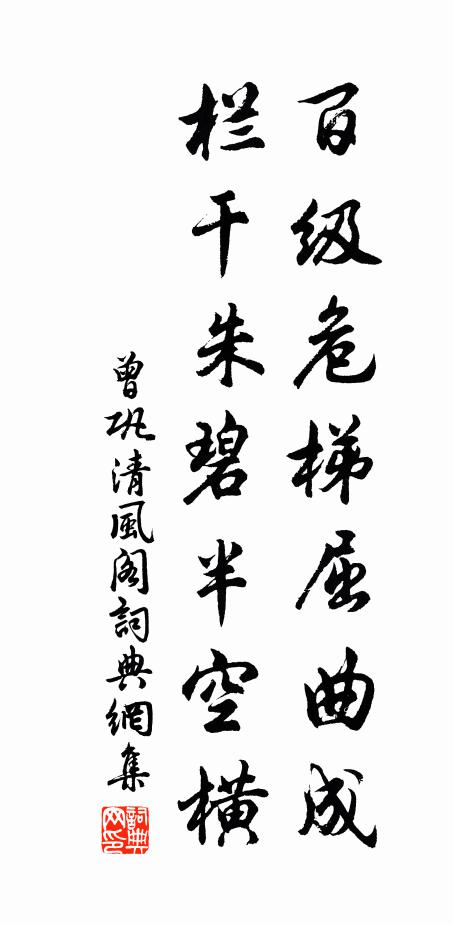 百级危梯屈曲成
栏干朱碧半空横
曾巩清風阁詞典網集
詞典网印